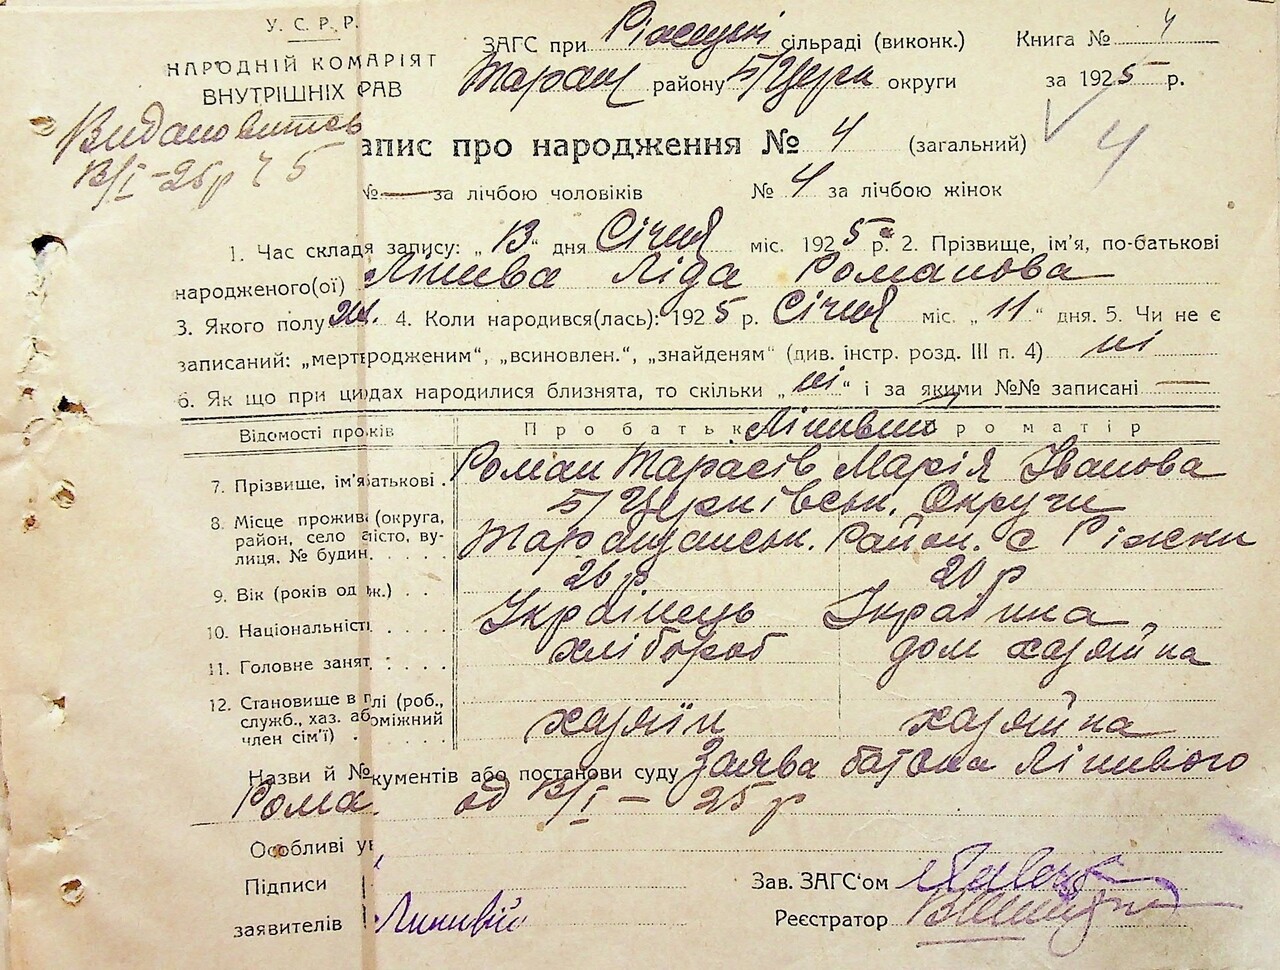 У. С. Р. Р.
НАРОДНІЙ КОМАРІЯТ
ВНУТРІШНІХ РАВ
ЗАГС при сільраді (виконк.) Книга № 4
Таращ району Б/Церк округи за 1925 р.
13/I-25р
апис про народження № 4 (загальний) 4
№ — за лічбою чоловіків № 4 за лічбою жінок
1. Час складя запису: „13“ дня Січня міс. 1925 р. 2. Прізвище, ім'я, по-батькові
народженого(ої) Лінива Ліда Романова
3. Якого полу жі. 4. Коли народився(лась): 1925 р. Січня міс. „11“ дня. 5. Чи не є
записаний: „мертвродженим“, „всиновлен.“, „знайденям“ (див. інстр. розд. III п. 4) ні
6. Як що при цидах народилися близнята, то скільки „ні“ і за якими №№ записані —
Відомості про ків Про батьк Лінивих ро матір
7. Прізвище, ім'я батькові . Роман Тарасів Марія Іванова
8. Місце прожив (округа, район, село місто, вулиця, № будин. Б/Церківськ. Округи
Таращанськ. Район. с Ріжки
9. Вік (років од ж.) . . 26 р 20 р
10. Національніст . . . . Українець Українка
11. Головне занят . . . . хлібороб дом хазяйка
12. Становище в лі (роб., служб., хаз. аб оміжний член сім'ї) . хазяїн хазяйка
Назви й № кументів або постанови суду Заява батька Лінивого
Рома од 13/I — 25 р
Особливі ув
Підписи
заявителів Линивий
Зав. ЗАГС'ом
Реєстратор